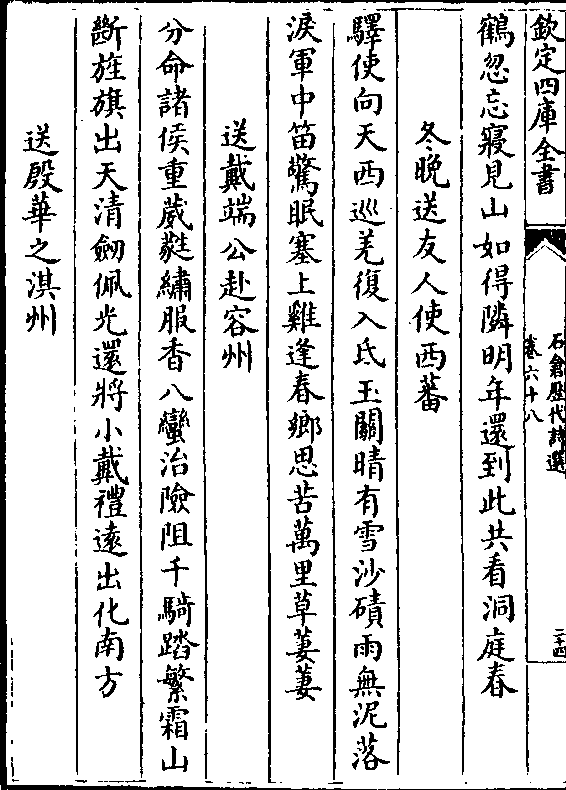 欽定四庫全書
石倉歷代詩選
卷六十八
二十四
鶴忽忘寢見山如得隣明年還到此共看洞庭春
冬晚送友人使西蕃
驛使向天西巡羌復入氐玉關晴有雪沙磧雨無泥落
淚軍中笛驚眠塞上雞逢春鄉思苦萬里草萋萋
送戴端公赴容州
分命諸侯重葳蕤繡服香八蠻治險阻千騎踏繁霜山
斷旌旗出天清劒佩光還將小戴禮遠出化南方
送殷華之淇州